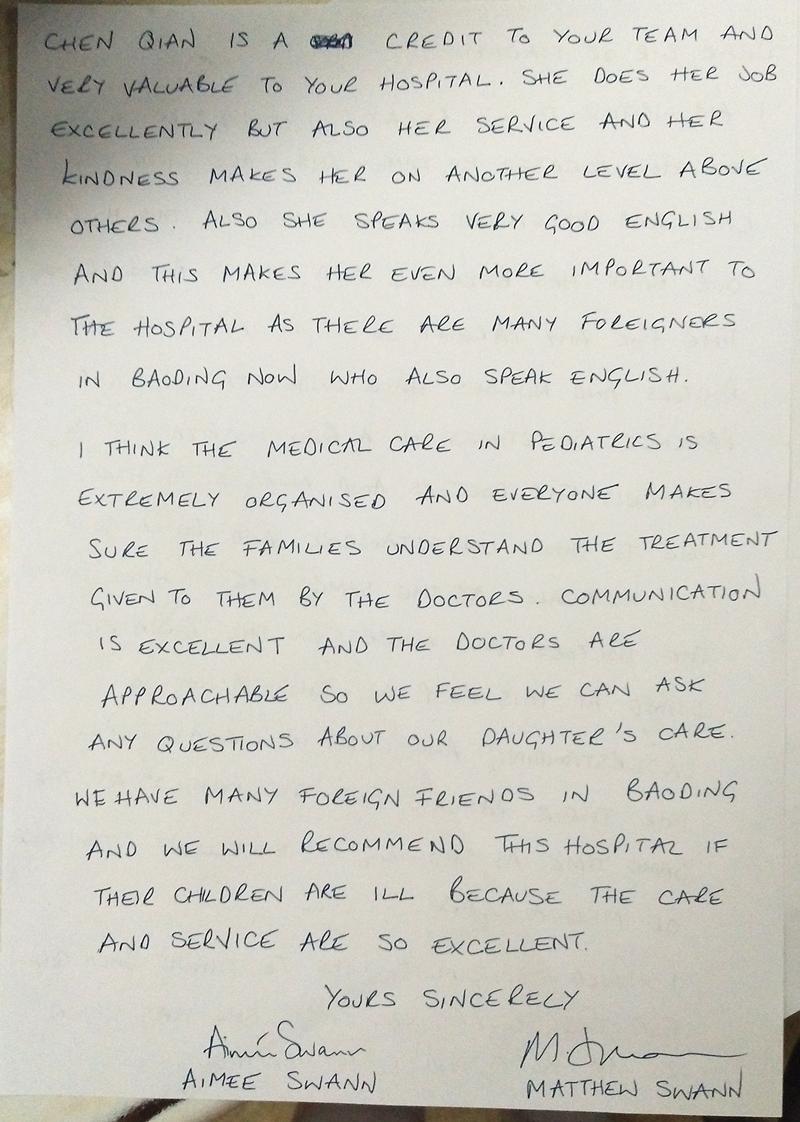 CHEN QIAN IS A CREDIT TO YOUR TEAM AND
VERY VALUABLE TO YOUR HOSPITAL. SHE DOES HER JOB
EXCELLENTLY BUT ALSO HER SERVICE AND HER
KINDNESS MAKES HER ON ANOTHER LEVEL ABOVE
OTHERS. ALSO SHE SPEAKS VERY GOOD ENGLISH
AND THIS MAKES HER EVEN MORE IMPORTANT TO
THE HOSPITAL AS THERE ARE MANY FOREIGNERS
IN BAODING NOW WHO ALSO SPEAK ENGLISH.
I THINK THE MEDICAL CARE IN PEDIATRICS IS
EXTREMELY ORGANISED AND EVERYONE MAKES
SURE THE FAMILIES UNDERSTAND THE TREATMENT
GIVEN TO THEM BY THE DOCTORS. COMMUNICATION
IS EXCELLENT AND THE DOCTORS ARE
APPROACHABLE SO WE FEEL WE CAN ASK
ANY QUESTIONS ABOUT OUR DAUGHTER'S CARE.
WE HAVE MANY FOREIGN FRIENDS IN BAODING
AND WE WILL RECOMMEND THIS HOSPITAL IF
THEIR CHILDREN ARE ILL BECAUSE THE CARE
AND SERVICE ARE SO EXCELLENT.
YOURS SINCERELY
Aimée Swann
AIMEE SWANN MATTHEW SWANN